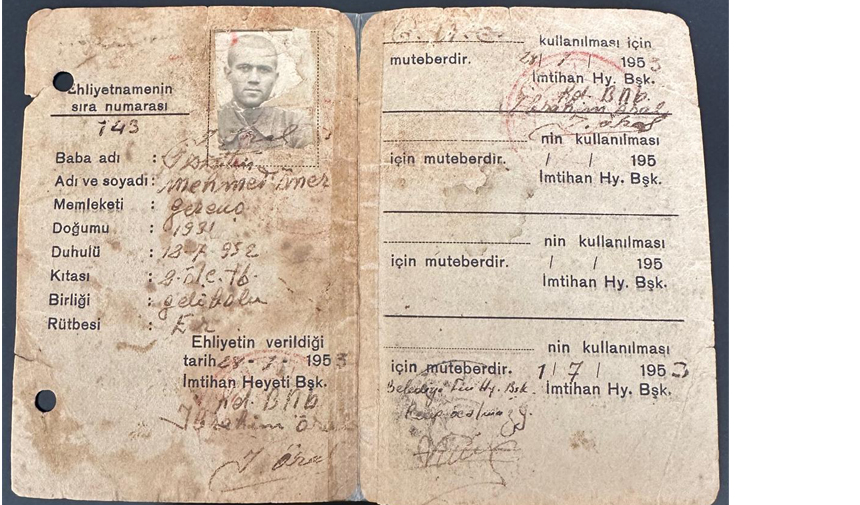 Ehliyetnamenin
sıra numarası
143
Baba adı :
Adı ve soyadı: Mehmet Ömer
Memleketi :
Doğumu : 1931
Duhulü : 18-7-952
Kıtası :
Birliği : gelibolu
Rütbesi : Er
Ehliyetin verildiği
tarih 28-7-1953
Imtihan Heyeti Bşk.
Kd. Bnb
İbrahim Öral
İ. Öral
kullanılması için
muteberdir. 28/7/1953
Imtihan Hy. Bşk.
Kd. Bnb
İbrahim Öral
İ. Öral
nin kullanılması
için muteberdir. / / 195
Imtihan Hy. Bşk.
nin kullanılması
için muteberdir. / / 195
Imtihan Hy. Bşk.
nin kullanılması
için muteberdir. 1/7/1953
Imtihan Hy. Bşk.
Belediye Hy. Bşk.